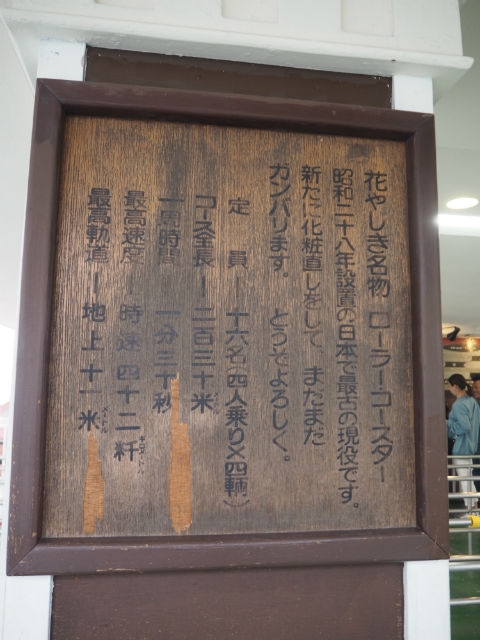 花やしき名物 ローラーコースター
昭和二十八年設置の日本で最古の現役です。
新たに化粧直しをして、またまた
ガンバります。 どうぞよろしく。
定員―十六名(四人乗り×四輌)
コース全長―二百三十米
一周時間 一分三十秒
最高速度―時速四十二粁キロメートル
最高軌道―地上十一米メートル